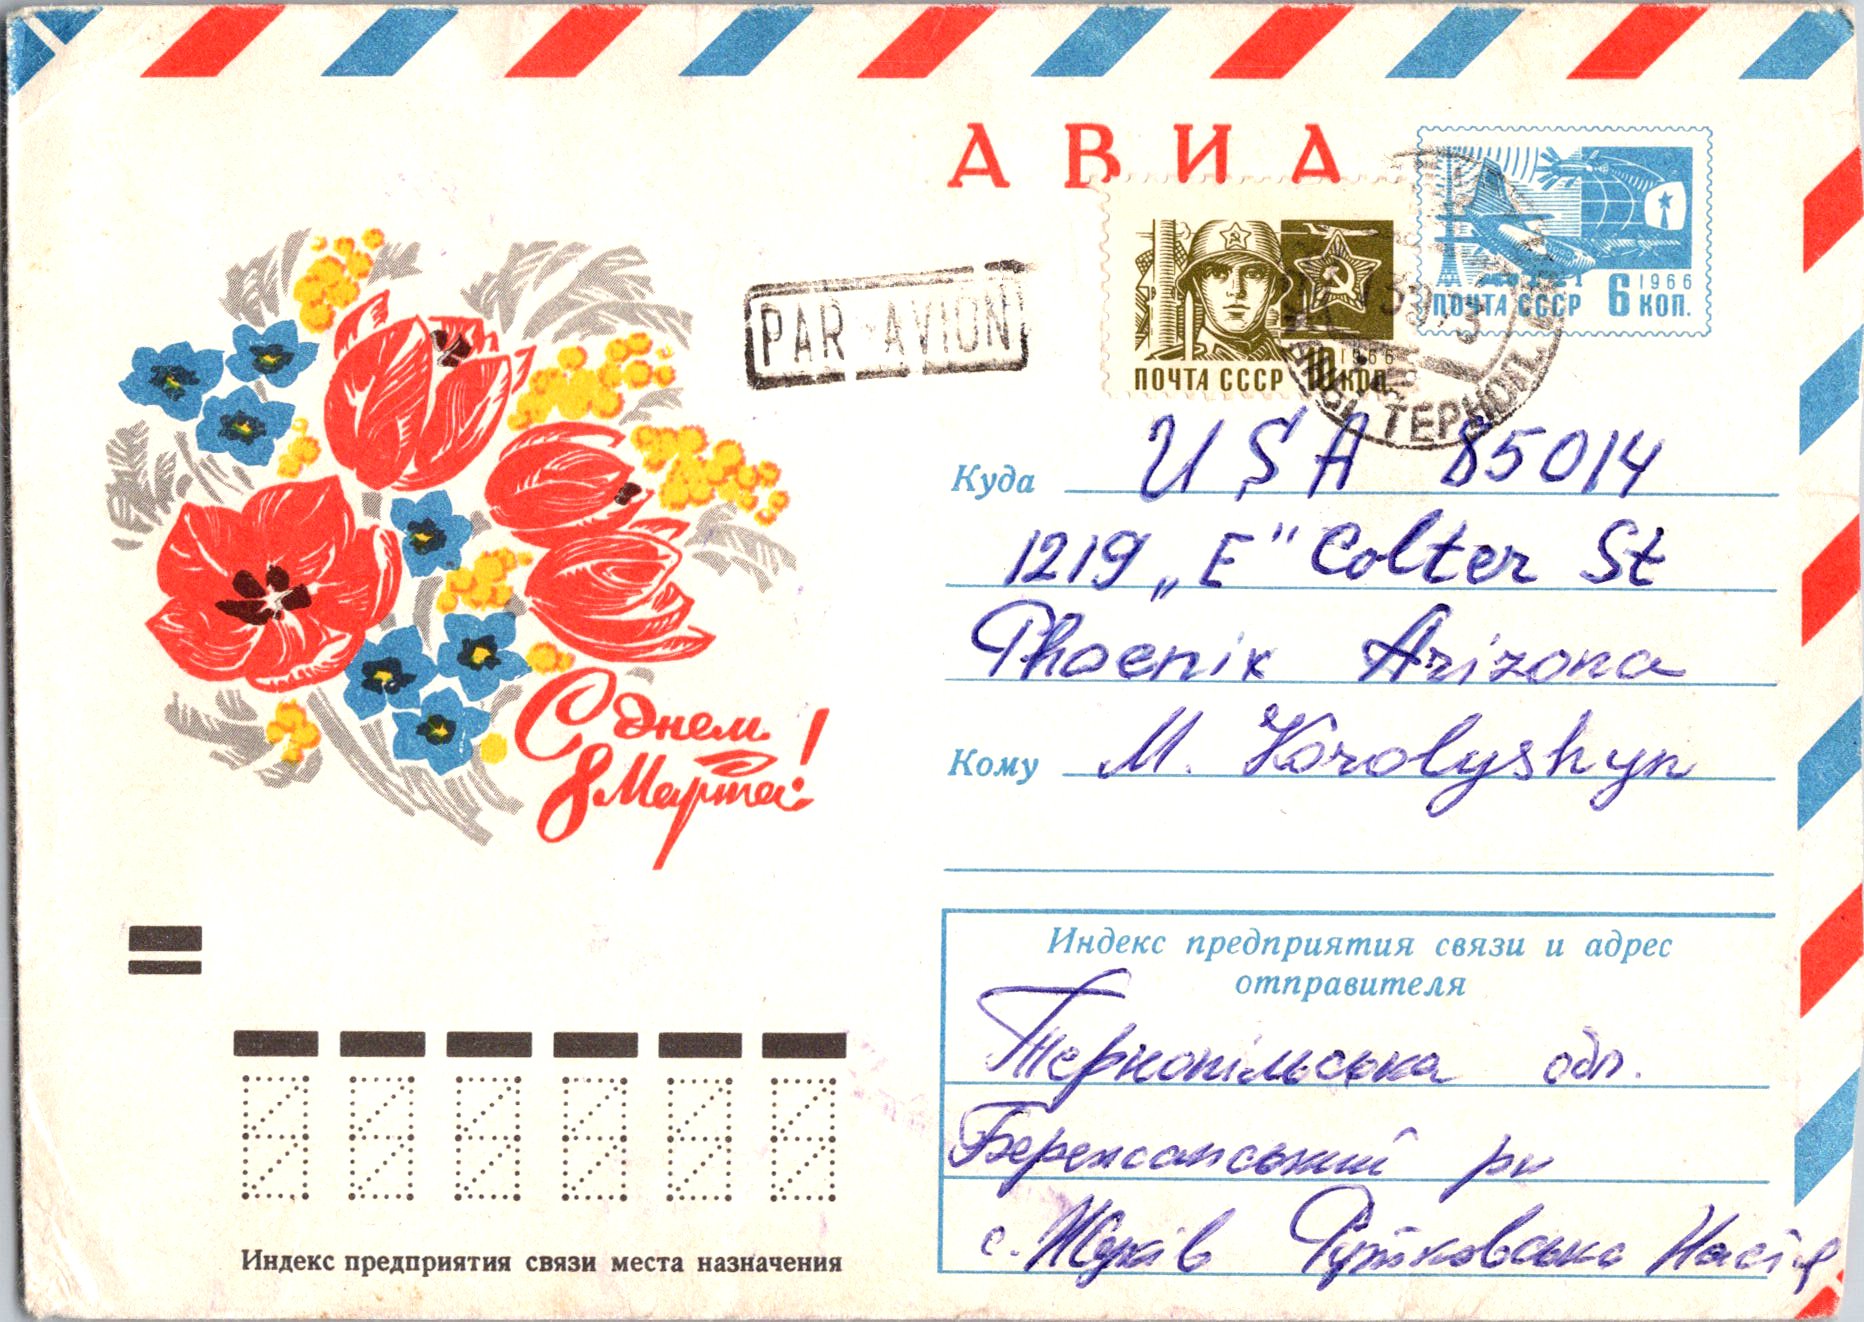 АВИА
1966
ПОЧТА СССР 6 КОП.
1966
ПОЧТА СССР 10 КОП.
PAR AVION
ТЕРНОП.
Куда USA 85014
1219 „E” Colter St
Phoenix Arizona
Кому M. Korolyshyn
С днем
8 Марта!
Индекс предприятия связи и адрес
отправителя
Тернопільська обл.
Бережанський рн
с. Жуків Рутковська Настя
Индекс предприятия связи места назначения